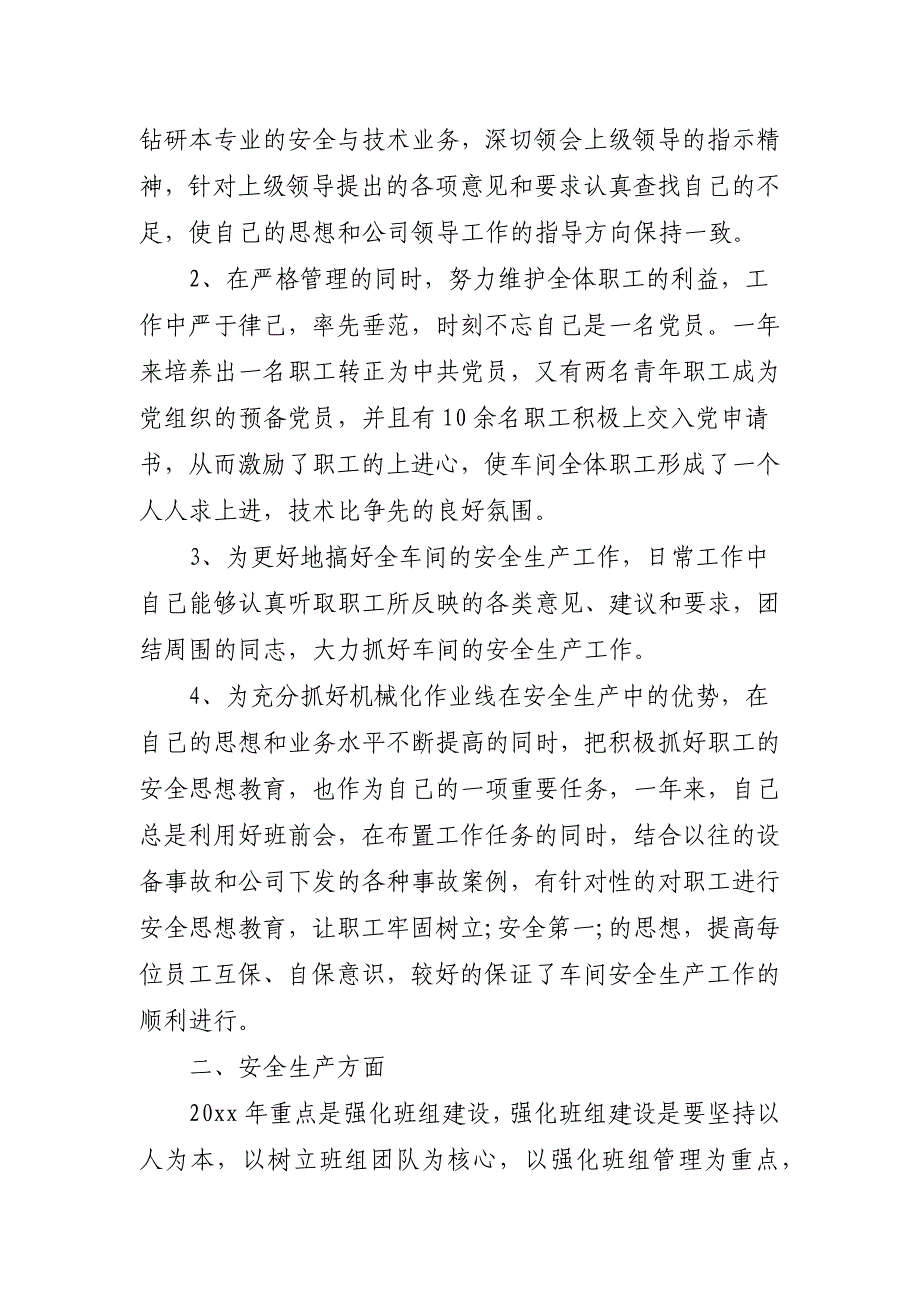 钻研本专业的安全与技术业务，深切领会上级领导的指示精
神，针对上级领导提出的各项意见和要求认真查找自己的不
足，使自己的思想和公司领导工作的指导方向保持一致。
2、在严格管理的同时，努力维护全体职工的利益，工
作中严于律己，率先垂范，时刻不忘自己是一名党员。一年
来培养出一名职工转正为中共党员，又有两名青年职工成为
党组织的预备党员，并且有 10 余名职工积极上交入党申请
书，从而激励了职工的上进心，使车间全体职工形成了一个
人人求上进，技术比争先的良好氛围。
3、为更好地搞好全车间的安全生产工作，日常工作中
自己能够认真听取职工所反映的各类意见、建议和要求，团
结周围的同志，大力抓好车间的安全生产工作。
4、为充分抓好机械化作业线在安全生产中的优势，在
自己的思想和业务水平不断提高的同时，把积极抓好职工的
安全思想教育，也作为自己的一项重要任务，一年来，自己
总是利用好班前会，在布置工作任务的同时，结合以往的设
备事故和公司下发的各种事故案例，有针对性的对职工进行
安全思想教育，让职工牢固树立;安全第一;的思想，提高每
位员工互保、自保意识，较好的保证了车间安全生产工作的
顺利进行。
二、安全生产方面
20xx 年重点是强化班组建设，强化班组建设是要坚持以
人为本，以树立班组团队为核心，以强化班组管理为重点，